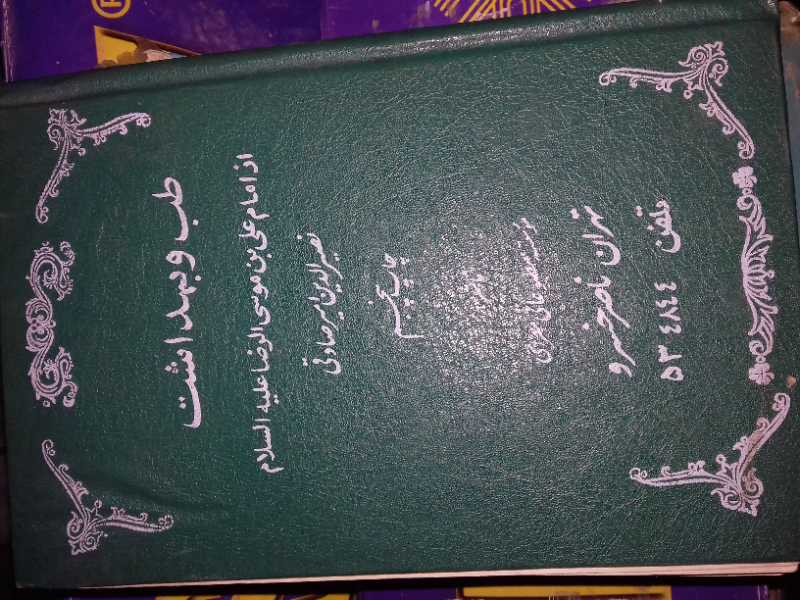 طب و بهداشت
از امام علی بن موسی الرضا علیه السلام
نصیرالدین امیر صادقی
چاپ پنجم
ناشر
تهران ناصر خسرو
تلفن ٥٣٤٨٤٤